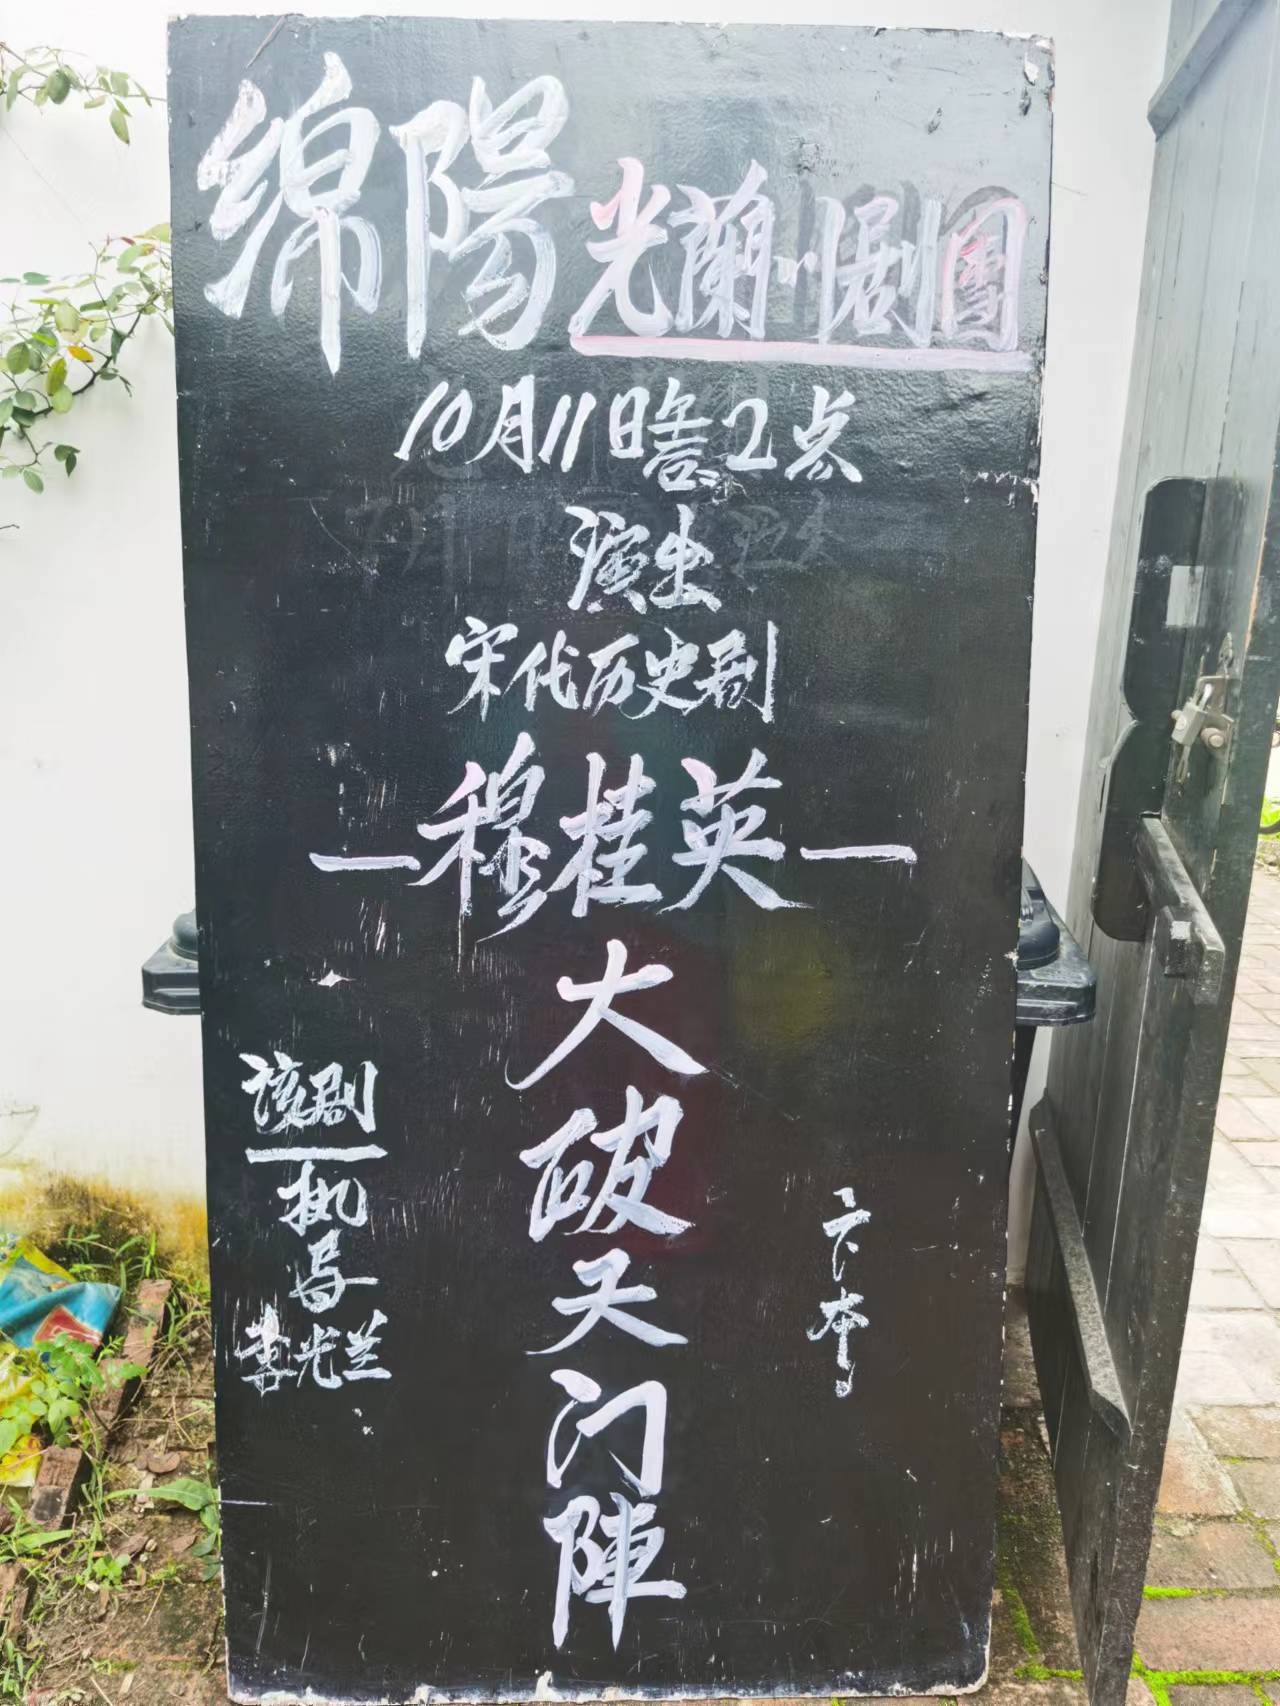 绵陽光蘭川剧團
10月11日 2点
演出
宋代历史剧
—穆桂英—
大破天门陣
本
该剧
执导
李光兰